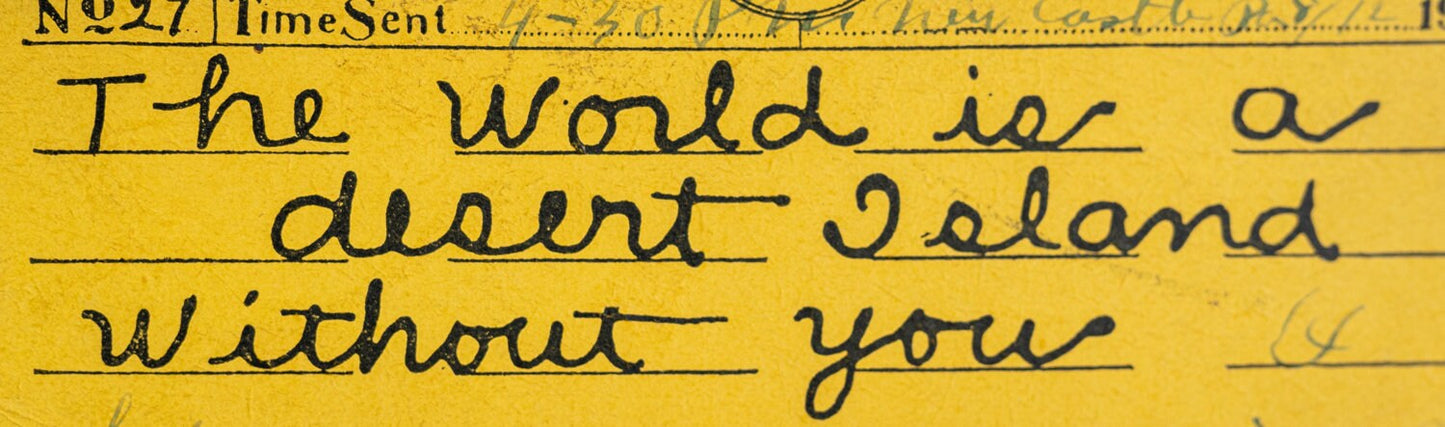 No 27 Time Sent 4-30 P M New Castle 19
The World is a
desert Island
Without you